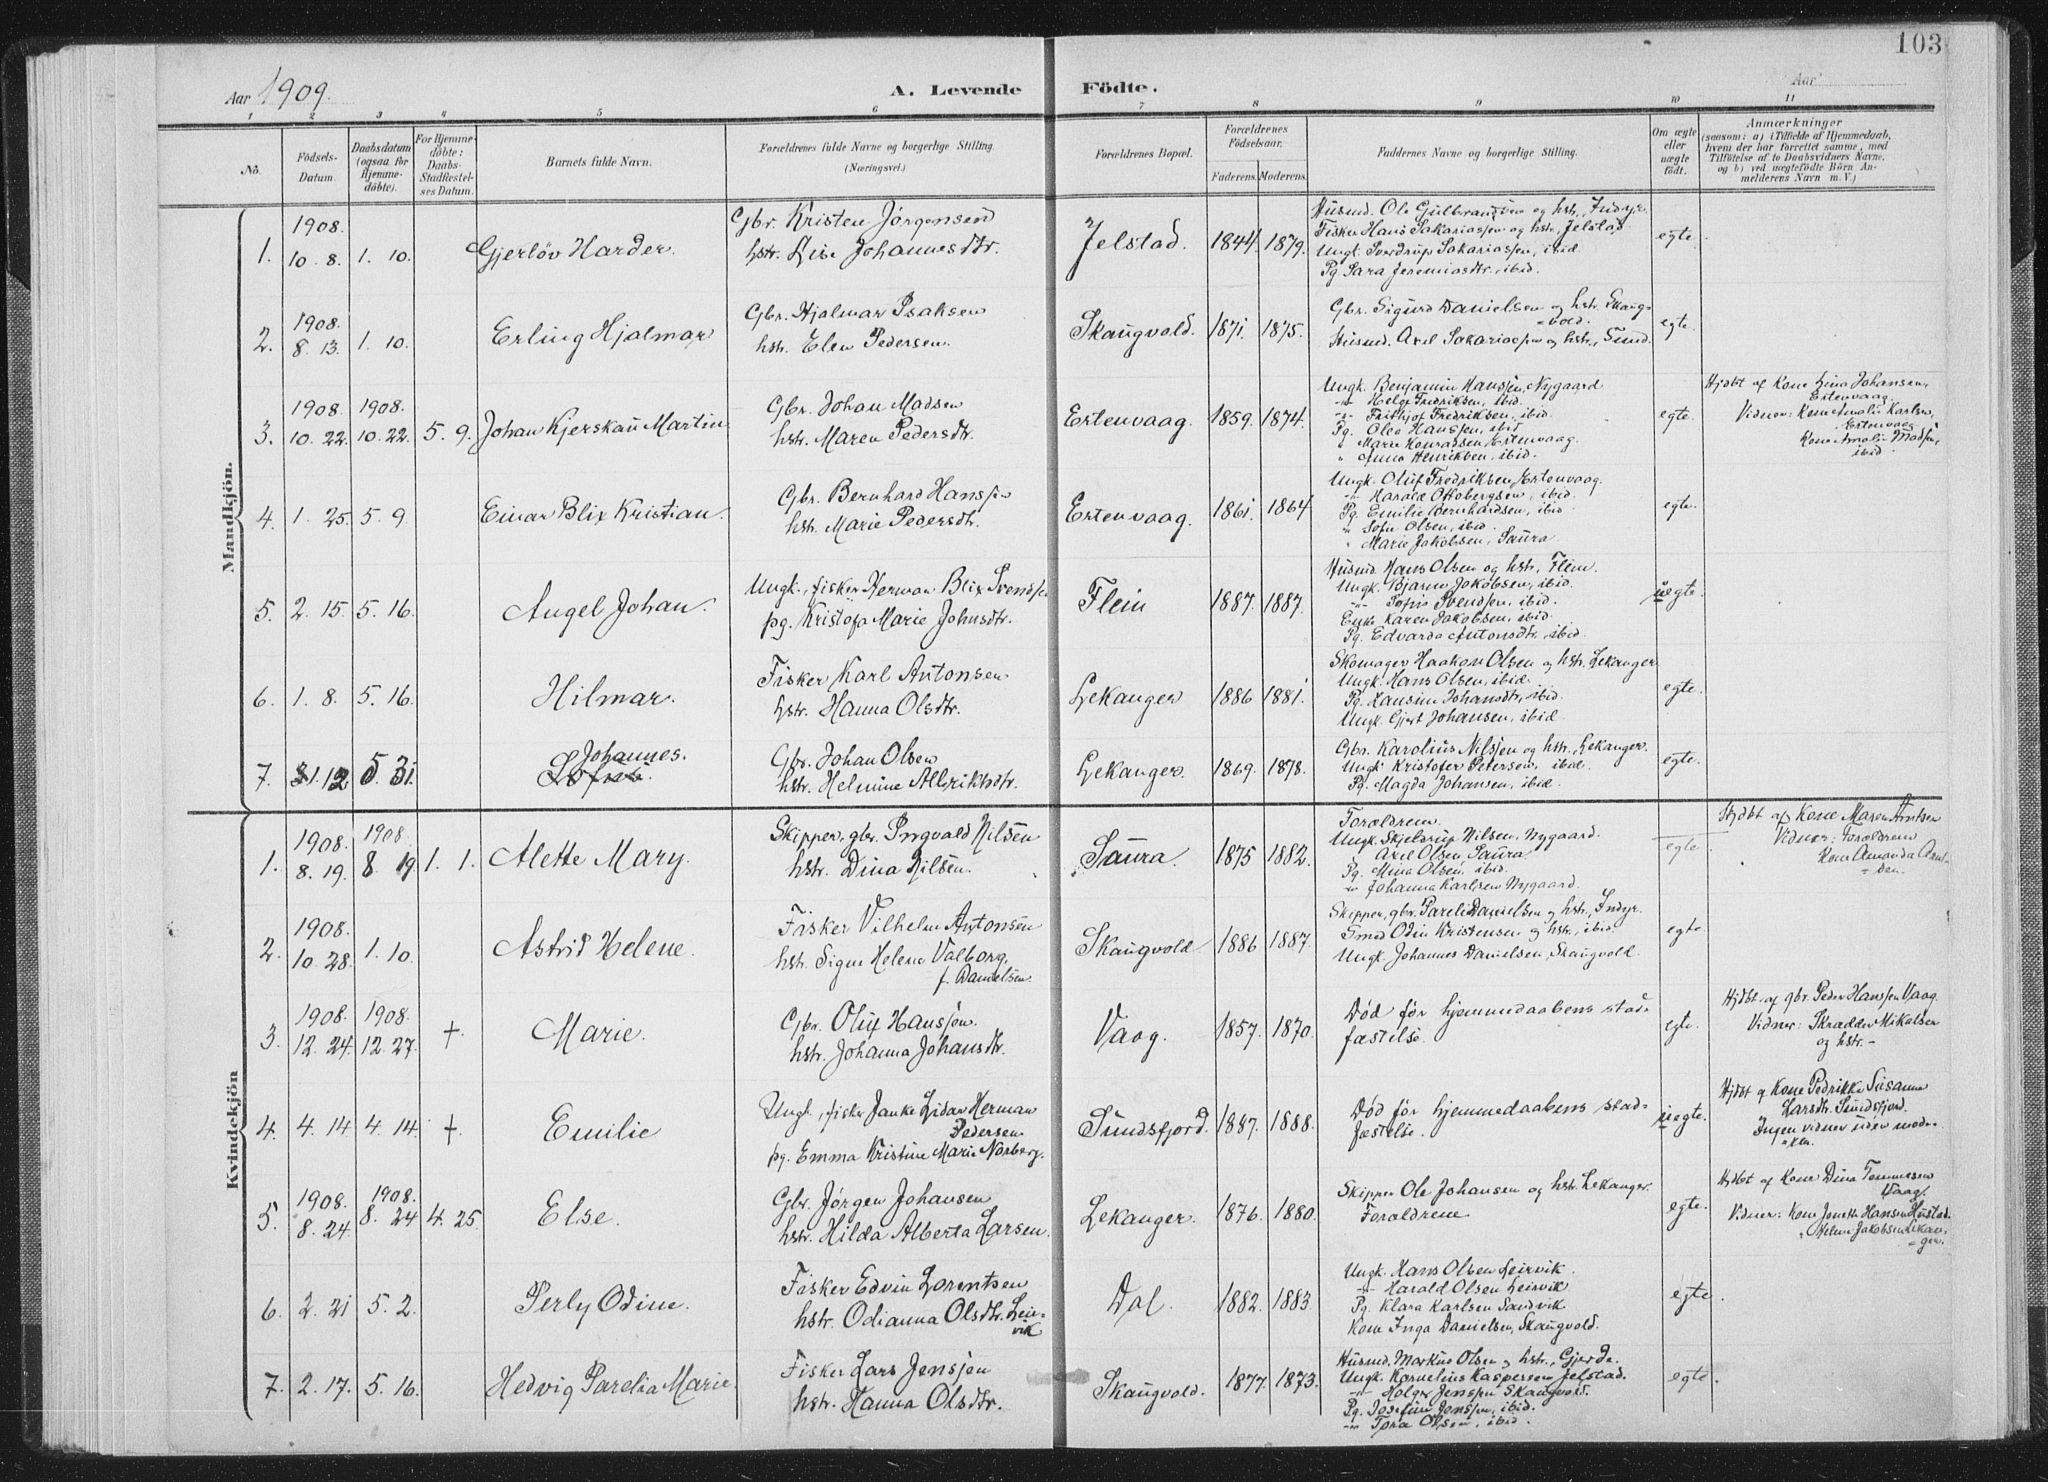 103
Aar 1909.
A. Levende Födte.
Aar
1 2 3 4 5 6 7 8 9 10 11
No.
Födsels-Datum.
Daabsdatum (ogsaa for Hjemmedöbte).
For Hjemmedöbte: Daabs-Stadfæstelses Datum.
Barnets fulde Navn.
Forældrenes fulde Navne og borgerlige Stilling. (Næringsvei.)
Forældrenes Bopæl.
Forældrenes Födselsaar.
Faderens. Moderens.
Faddernes Navne og borgerlige Stilling.
Om ægte eller uægte födt.
Anmærkninger
(saasom: a) i Tilfælde af Hjemmedaab, hvem der har forrettet samme, med Tilföielse af to Daabsvidners Navne, og b) ved uægtefödte Börn Anmelderens Navn m. V.)
Mandkjön.
1. 1908. 10. 8. 1. 10. Gjerløv Harder.
Gbr. Kristen Jørgensen
hstr. Lise Johannesdtr.
Jelstad. 1844. 1879.
Husmd. Ole Gulbrandsen og hstr., Indyr.
Fisker Hans Sakariasjen og hstr., Jelstad
Ungk. Sverdrup Sakariassen, ibid.
Pg. Sara Jeremiasdtr., ibid.
egte.
2. 1908. 8. 13. 1. 10. Erling Hjalmar
Gbr. Hjalmar Isaksen
hstr. Elen Pedersen.
Skaugvold. 1871. 1875.
Gbr. Sigurd Danielsen og hstr. Skaug-
vold.
Husmd. Axel Sakariassen og hstr., Sund.
egte.
3. 1908. 10. 22. 1908. 10. 22. 5. 9. Johan Kjerskau Martin
Gbr. Johan Madsen
hstr. Maren Pedersdtr.
Estenvaag. 1859. 1874.
Ungk. Benjamin Hansen, Nygaard
-"- Helge Fredriksen, ibid.
-"- Frithjof Fredriksen, ibid.
Pg. Olea Hansjen, ibid
" Marie Konradsen Estenvaag.
" Anna Henriksen, ibid.
egte.
Hjdbt af Kone Lina Johansen,
Estenvaag.
Vidner: Kone Amalie Karlsen,
Estenvaag
Kone Amalie Madsen,
ibid.
4. 1. 25. 5. 9. Einar Blix Kristian.
Gbr. Bernhard Hansjen
hstr. Marie Pedersdtr.
Estenvaag. 1861. 1864
Ungk. Oluf Fredriksen, Estenvaag.
-"- Harald Ottobergsen, ibid.
Pg. Emilie Bernhardsen, ibid.
" Sofie Olsen, ibid.
" Marie Jakobsen, Saura.
egte.
5. 2. 15. 5. 16. Angel Johan.
Ungk., fisker Herman Blix Svendsen
pg. Kristofa Marie Johnsdtr.
Flein 1887. 1887.
Husmd. Hans Olsen og hstr., Flein.
Ungk. Bjarne Jakobsen, ibid.
-"- Tofis Svendsen, ibid.
Enke Karen Jakobsen, ibid.
Pg. Edvarda Antonsdtr., ibid.
uegte.
6. 1. 8. 5. 16. Hilmar.
Fisker Karl Antonsen
hstr. Hanna Olsdtr.
Lekanger 1886 1881.
Skomager Haakon Olsen og hstr. Lekanger
Ungk. Hans Olsen, ibid.
Pg. Hansine Johansdtr., ibid.
Ungk. Gjert Johansen, ibid
egte.
7. 5. 31. Johannes.
Gbr. Johan Olsen
hstr. Helmine Albriktsdtr.
Lekanger. 1869. 1878.
Gbr. Karolius Nilsjen og hstr. Lekanger.
Ungk. Kristofer Petersen, ibid.
Pg. Magda Johansen, ibid.
egte.
Kvindekjön
1. 1908. 8. 19. 1908 8. 19 1. 1. Alette Mary.
Skipper, gbr. Ingvald Nilsen
hstr. Dina Nilsen.
Saura. 1875 1882.
Forældrene.
Ungk. Skjelstrup Nilsen, Nygaard.
Axel Olsen, Saura
Pg. Mina Olsen, ibid.
-"- Johanna Karlsen Nygaard.
egte
Hjdbt af Kone Maren Arntsen
Vidner: Forældrene
Kone Amanda Arnt-
sen.
2. 1908. 10. 28. 1. 10. Astrid Helene.
Fisker Vilhelm Antonsen
hstr. Signe Helene Valborg,
f. Danielsen.
Skaugvold 1886 1887.
Skipper, gbr. Pareli Danielsen og hstr., Indyr.
Smed Odin Kristensen og hstr., ibid.
Ungk. Johannes Danielsen, Skaugvold.
egte
3. 1908. 12. 24. 1908. 12. 27. †. Marie.
Gbr. Oluf Hansjen.
hstr. Johanna Johansdtr.
Vaag. 1857. 1870.
Død før hjemmedaabens stad-
fæstelse.
egte.
Hjdbt. af gbr. Peder Hansjen Vaag.
Vidner: Skrædder Mikalsen
og hstr. -
4. 4. 14. 4. 14. †. Emilie
Ungk., fisker Janke Lidar Herman
Pedersen
pg. Emma Kristine Marie Norberg.
Sundsfjord. 1887. 1888.
Død før hjemmedaabens stad-
fæstelse.
uegte.
Hjdbt af Kone Pedrikke Susanne
Larsdtr. Sundsfjord.
Ingen vidner uden mode-
ren.
5. 1908. 8. 24. 1908. 8. 24 4. 25. Else.
Gbr. Jørgen Johansen
hstr. Hilda Alberta Larsen.
Lekanger. 1876. 1880.
Skipper Ole Johansen og hstr. Lekanger.
Forældrene
egte.
Hjdbt af Kone Dina Tommesen
Vaag.
Vidner: Kone Hansen Hustad.
" Helene Jakobsen Lekan-
ger.
6. 2. 21 5. 2. Perly Odine.
Fisker Edvin Lorentsen
hstr. Odianna Olsdtr. Leir-
vik
Dal. 1882. 1883.
Ungk. Hans Olsen Leirvik.
-"- Harald Olsen Leirvik
Pg. Klara Karlsen Sandvik
Kone Inga Danielsen, Skaugvold.
egte.
7. 2. 17. 5. 16. Hedvig Parelia Marie.
Fisker Lars Jensjen
hstr. Hanna Olsdtr.
Skaugvold. 1877. 1873.
Husmd. Markus Olsen og hstr., Gjerde.
Ungk. Kornelius Kaspersen Jelstad.
-"- Holger Jensjen Skaugvold.
Pg. Josefine Jensjen, ibid.
-"- Tora Olsen, ibid.
egte.